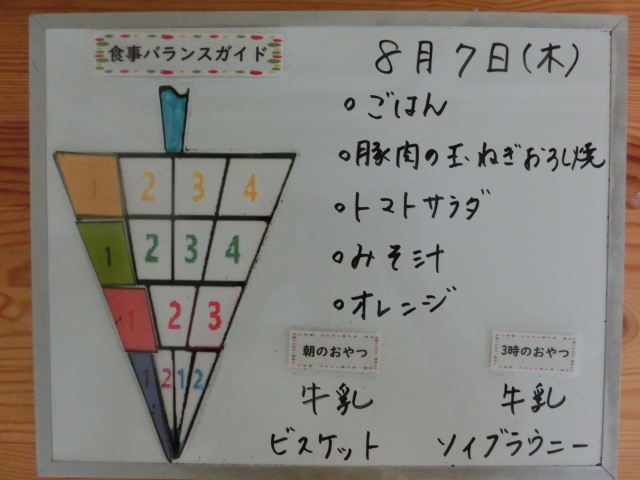 食事バランスガイド
8月7日(木)
1 2 3 4
1 2 3 4
1 2 3
1 2 1 2
・ごはん
・豚肉の玉ねぎおろし焼
・トマトサラダ
・みそ汁
・オレンジ
朝のおやつ
牛乳
ビスケット
3時のおやつ
牛乳
ソイブラウニー